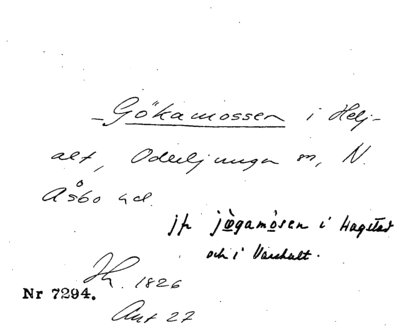 – Gökamossen i Helj-
alt, Oderljunga sn, N.
Åsbo hd.
jfr jögamosen i Hagstad
och i Varshult.
1826
Nr 7294.
Ant 27